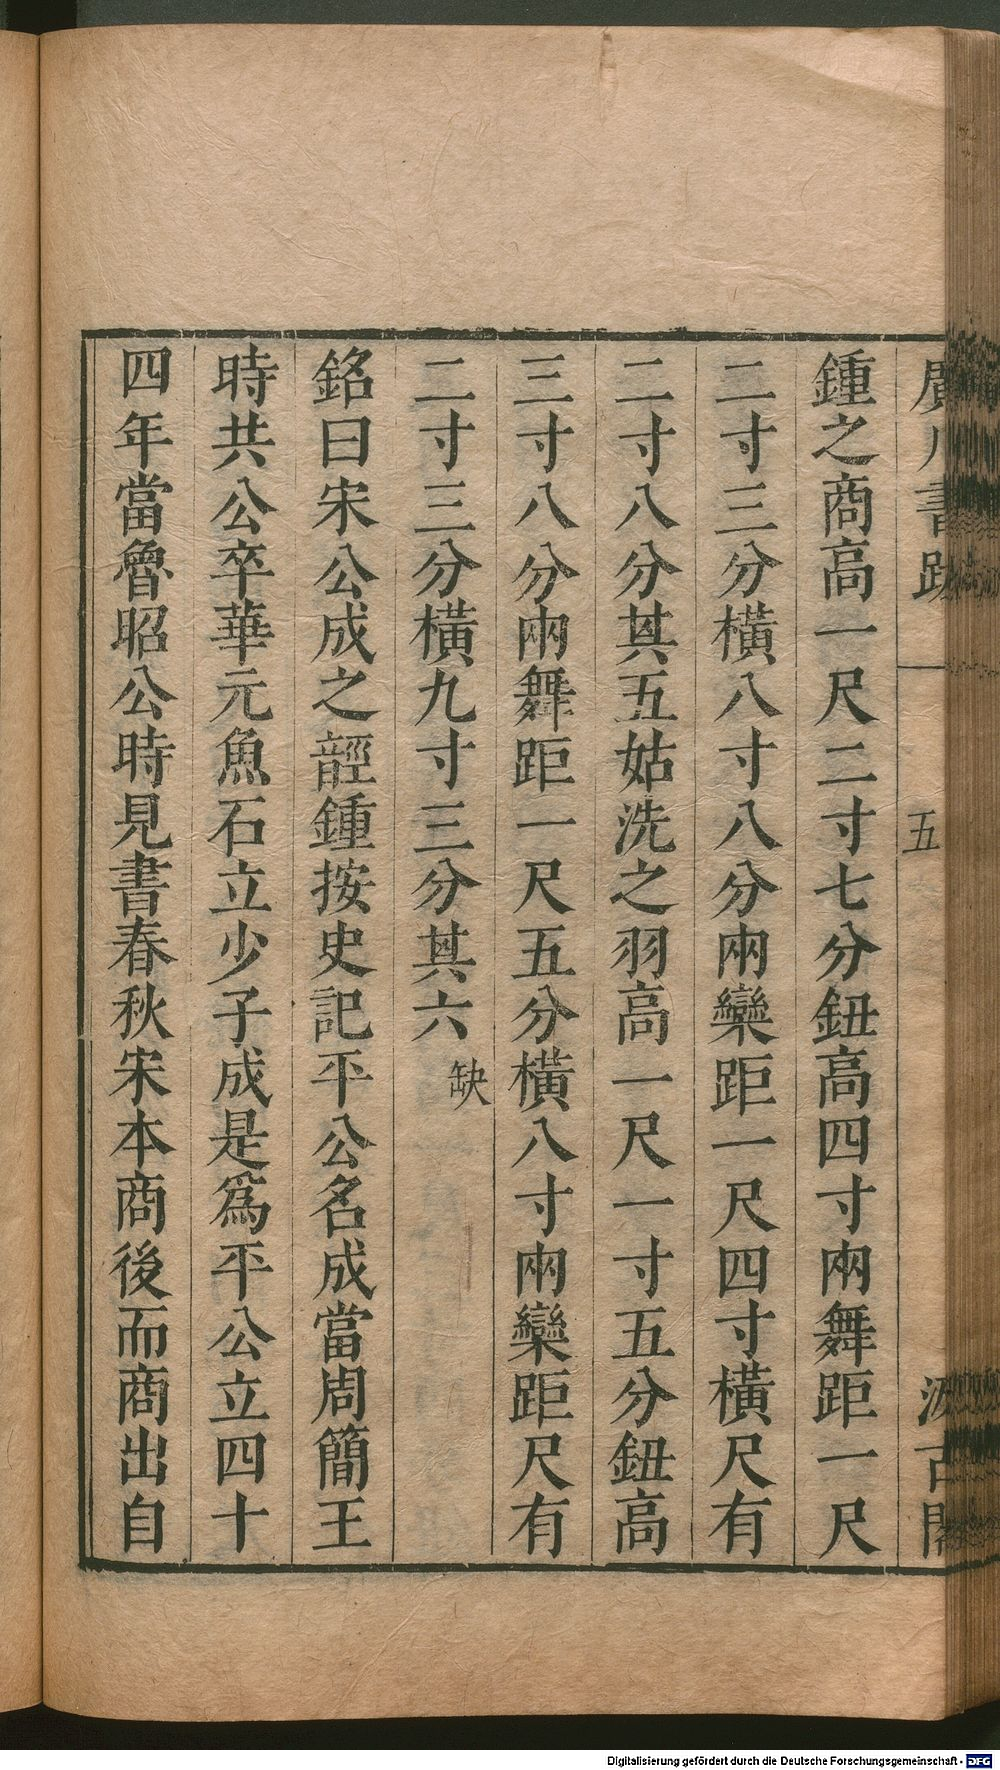 廣川書跋
五
汲古閣
鍾之商高一尺二寸七分鈕高四寸兩舞距一尺
二寸三分橫八寸八分兩欒距一尺四寸橫尺有
二寸八分其五姑洗之羽高一尺一寸五分鈕高
三寸八分兩舞距一尺五分橫八寸兩欒距尺有
二寸三分橫九寸三分其六 缺
銘曰宋公成之䪫鍾按史記平公名成當周簡王
時共公卒華元魚石立少子成是爲平公立四十
四年當魯昭公時見書春秋宋本商後而商出自
Digitalisierung gefördert durch die Deutsche Forschungsgemeinschaft - DFG